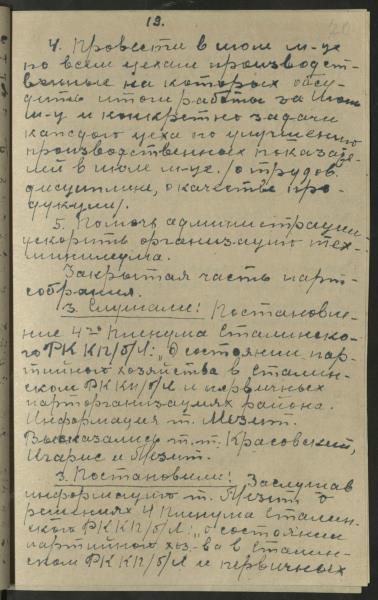 19.
20
4. Провести в июле м-це
по всем цехам производст-
венные на которых обсу-
дить итоги работы за Июнь
м-ц и конкретно задачи
каждого цеха по улучшению
производственных показате-
лей в июле м-це. /о трудов.
дисциплине, о качестве про-
дукции/.
5. Помочь администрации
ускорить организацию тех-
минимума.
Закрытая часть парт-
собрания.
3. Слушали: Постановле-
ние 4го Пленума Сталинско-
го РК КП/б/Л: „О состоянии пар-
тийного хозяйства в Сталин-
ском РК КП/б/Л и первичных
парторганизациях района.
Информация т. Мезит.
Высказались т.т. Красовский,
и Мезит.
3. Постановили: Заслушав
информацию т. Мезит о
решениях 4 Пленума Сталин-
ского РК КП/б/Л: „о состоянии
партийного хоз-ва в Сталин-
ском РК КП/б/Л и первичных